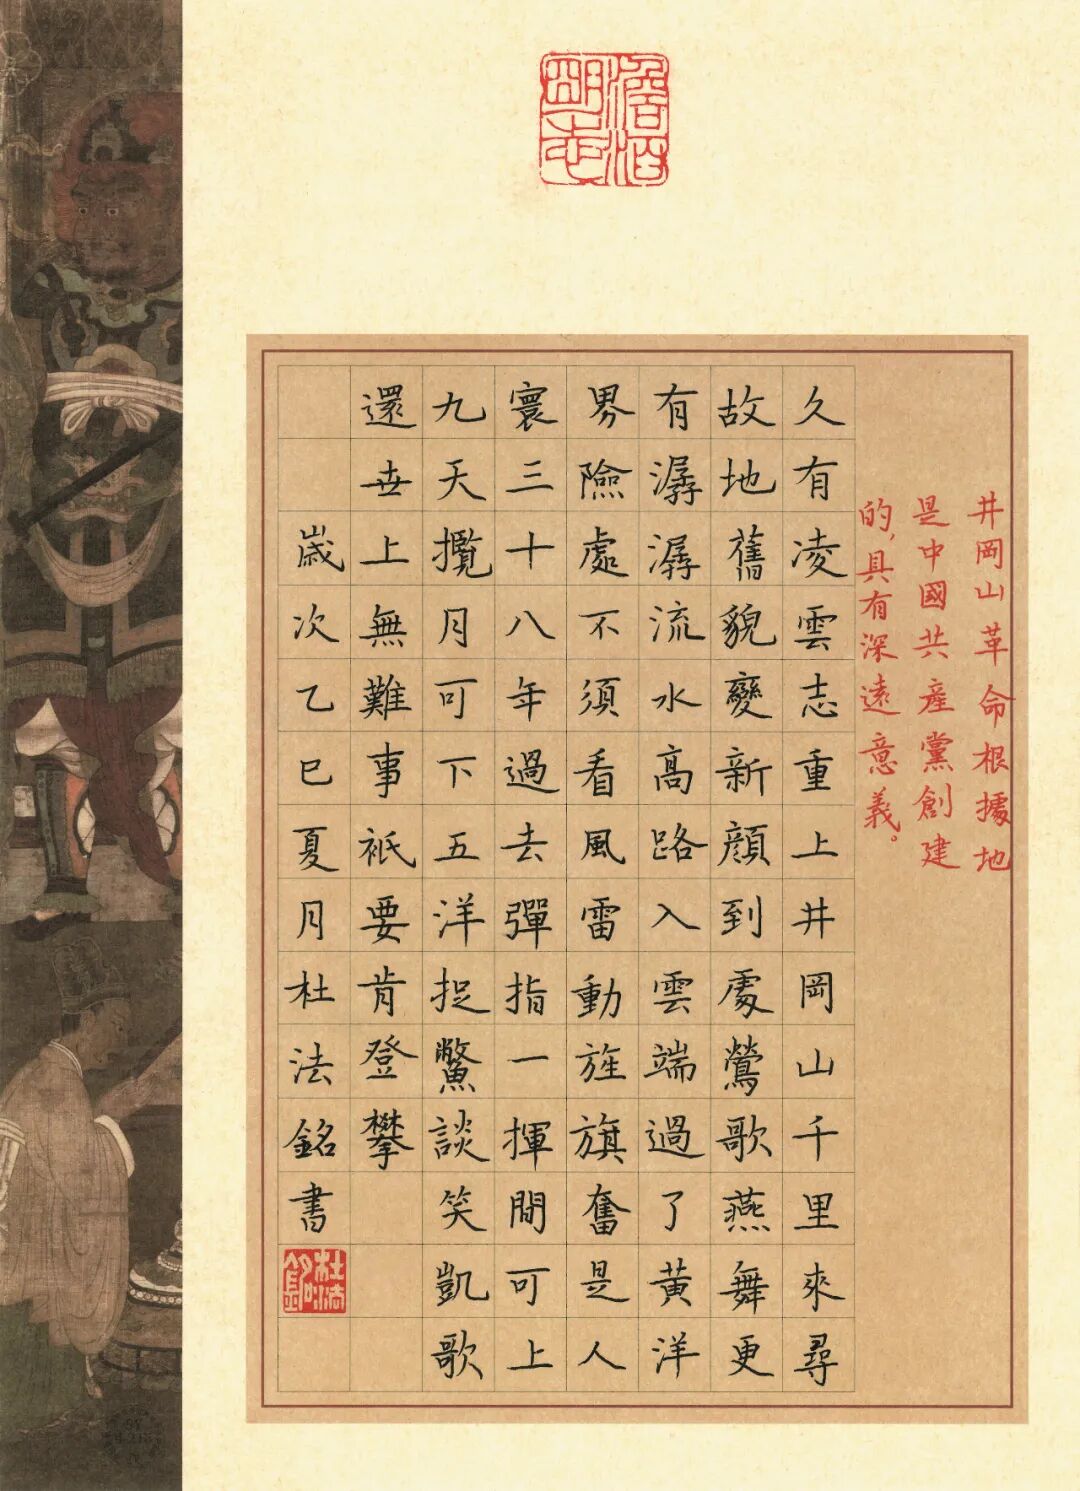 澹泊
明志
井岡山革命根據地
是中國共產黨創建
的,具有深遠意義。
久有凌雲志重上井岡山千里來尋
故地舊貌變新顏到處鶯歌燕舞更
有潺潺流水高路入雲端過了黃洋
界險處不須看風雷動旌旗奮是人
寰三十八年過去彈指一揮間可上
九天攬月可下五洋捉鱉談笑凱歌
還世上無難事衹要肯登攀
歲次乙巳夏月杜法銘書
杜法
銘